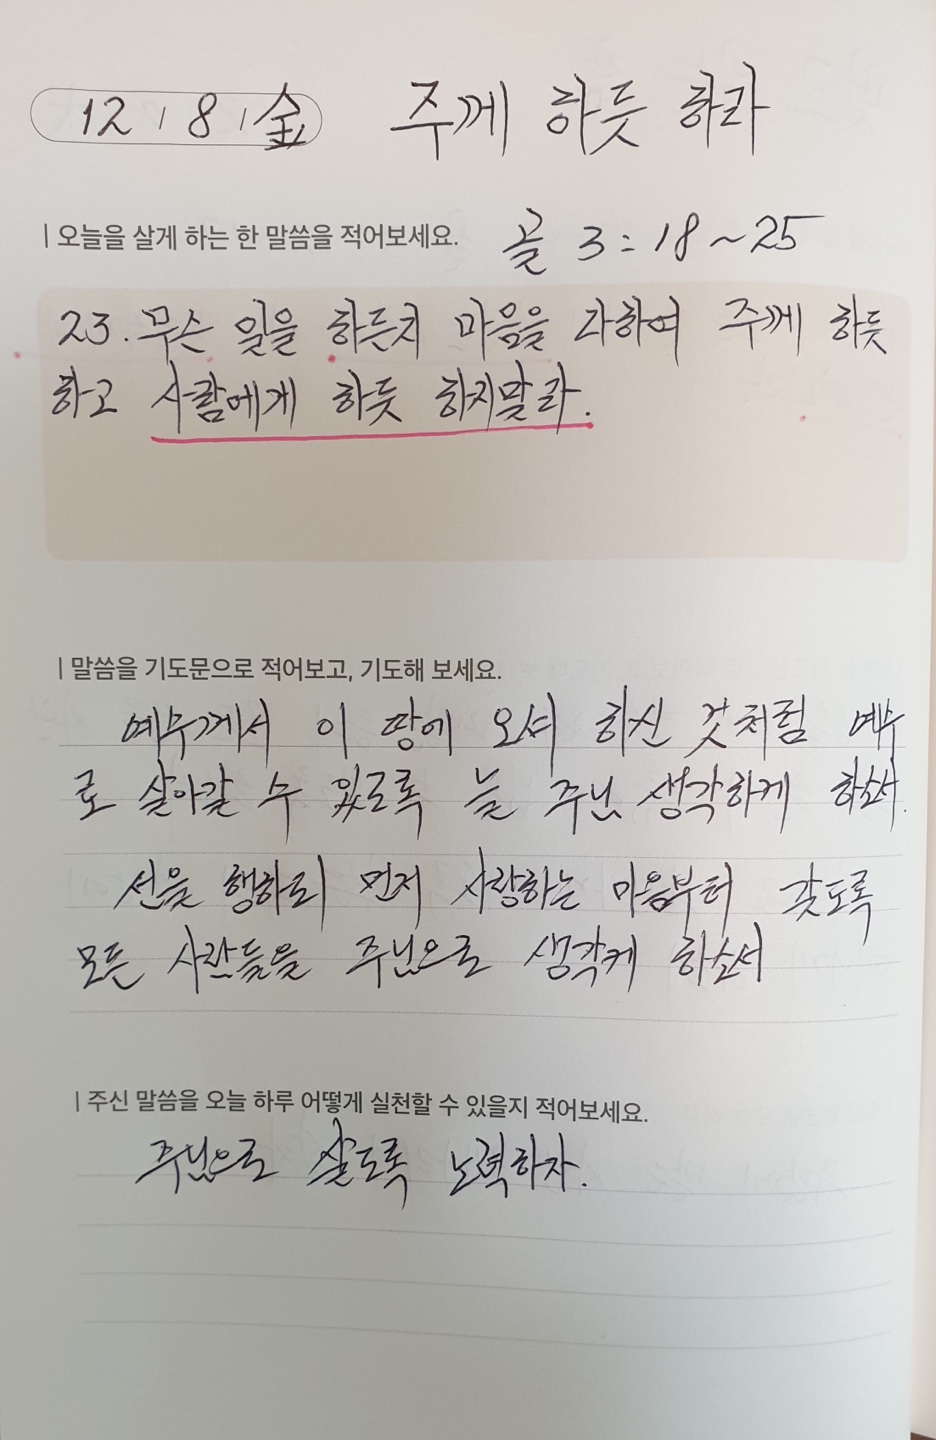 12 / 8 / 金 주께 하듯 하라
| 오늘을 살게 하는 한 말씀을 적어보세요. 골 3:18~25
23. 무슨 일을 하든지 마음을 다하여 주께 하듯
하고 사람에게 하듯 하지말라.
| 말씀을 기도문으로 적어보고, 기도해 보세요.
예수께서 이 땅에 오셔 하신 것처럼 예수
로 살아갈 수 있도록 늘 주님 생각하게 하소서.
선을 행하되 먼저 사랑하는 마음부터 갖도록
모든 사람들을 주님으로 생각케 하소서
| 주신 말씀을 오늘 하루 어떻게 실천할 수 있을지 적어보세요.
주님으로 살도록 노력하자.